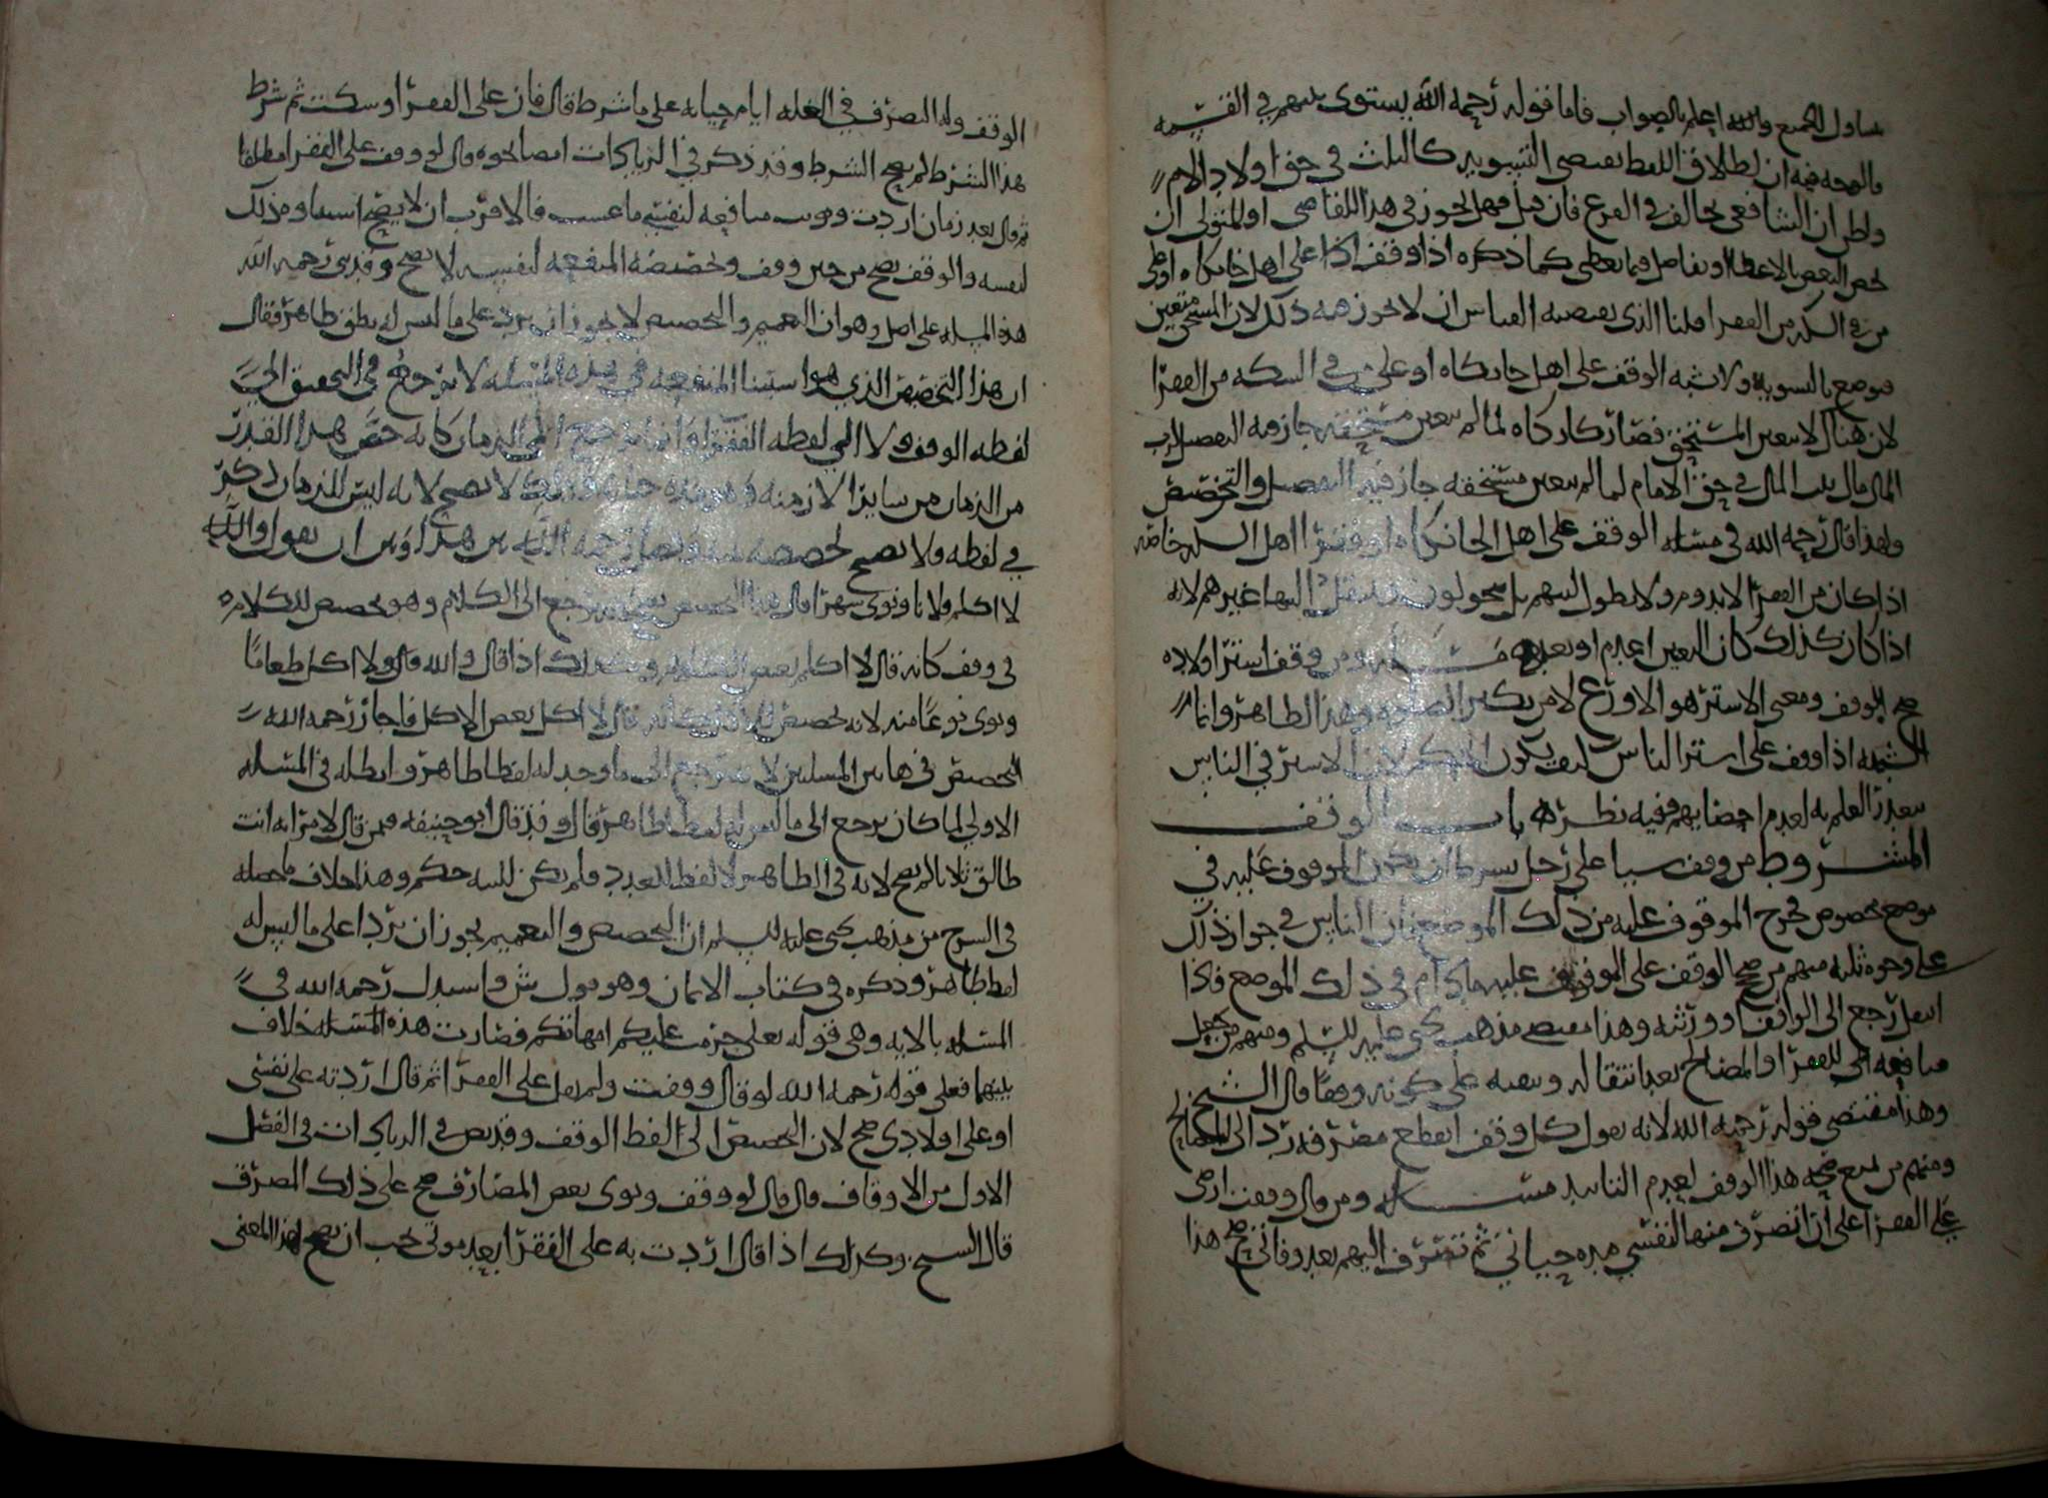 يتناول الجميع والله اعلم بالصواب فاما قوله رحمه الله يستوى بينهم في القسمه
فالوجه فيه ان اطلاق اللفظ يقتضى التسويه كالثلث في حق اولاد الام
واظن ان الشافعى يخالف في الفرع فان قيل فهل يجوز في هذا للقاضى او المتولى ان
يخص البعض بالاعطا او يفاضل فيما يعطى كما ذكره اذا وقف على اهل خانكاه او على
من في السكه من الفقرا قلنا الذى يقتضيه القياس ان لا يجوز ذلك لان المستحق متعين
فوضع بالسويه ولا يشبه الوقف على اهل خانكاه او على من في السكه من الفقرا
لان هناك لا يتعين المستحق فصار كالزكاه لما لم يتعين مستحقه جاز فيه التفضيل
المال مال بيت المال في حق الامام لما لم يتعين مستحقه جاز فيه التفضيل والتخصيص
ولهذا قال رحمه الله في مسئله الوقف على اهل الخانكاه او فقرا اهل السكه خاصه
اذا كان من الفقرا لا يدوم ولا يطول لبثهم بل يتحولون وينتقل اليها غيرهم لانه
اذا كان كذلك كان التعين اعدم او بعد مسئله ومن وقف استر اولاده
صح الوقف ومعنى الاستر هو الاورع لا من يكثر الصلوه وهذا الظاهر وانما
الشبهه اذا وقف على استر الناس كيف يكون الحكم لان الاستر في الناس
يتعذر العلم به لعدم احصايهم ففيه نظر باب الوقف
المشروط من وقف شيا على رجل بشرط ان يكون الموقوف عليه في
موضع مخصوص فخرج الموقوف عليه من ذلك الموضع فان الناس في جواز ذلك
على وجوه ثلثه منهم من صحح الوقف على الموقوف عليه ما دام في ذلك الموضع فاذا
انتقل رجع الى الواقف او ورثته وهذا مقتضى مذهب يحيى عليه السلم ومنهم من يجعل
منافعه الى للفقرا او المصالح بعد انتقاله ويبقيه على كونه وقفا قال الشيخ
وهذا مقتضى قوله رحمه الله لانه يقول كل وقف انقطع مصرفه رد الى المصالح
ومنهم من يمنع صحه هذا الوقف لعدم التابيد مسئله ومن قال وقفت ارضى
على الفقرا على ان اتصرف منها لنفسى مده حياتى ثم تصرف اليهم بعد وفاتى صح هذا
الوقف وله التصرف في الغله ايام حياته على ما شرط قال فان على الفقرا وسكت ثم شرط
هذا الشرط لم يصح الشرط وقد ذكر في الزيادات ايضا نحوه قال لو وقف على الفقرا مطلقا
ثم قال بعد زمان اردت وقوف منافعه لنفسى ما عشت فالاقرب ان لا يصح استثناوه ذلك
لنفسه والوقف يصح من حين وقف وتخصيصه المنفعه لنفسه لا يصح وقد بنى رحمه الله
هذه المسله على اصل وهو ان التعميم والتخصيص لا يجوز ان يرد على ما ليس له نطق ظاهر فقال
ان هذا التخصيص الذي هو استثنا المنفعه في هذه المسئله لا يرجع في التحقيق الى
لفظه الوقف ولا الي لفظه الفقرا وانما يرجع الى الزمان كانه خص هذا القدر
من الزمان من ساير الازمنه وذلك لا يصح لانه ليس للزمان ذكر
في لفظه ولا يصح تخصيصه وفصل رحمه الله بين هذا وبين ان يقول والله
لا اكلم فلانا ونوى شهرا قال هذا التخصيص يرجع الى الكلام وهو تخصيص لذكلامه
في وقف كانه قال لا اكلم بعض الكلام وكذلك اذا قال والله قال ولا اكل طعاما
ونوى نوعا منه لانه تخصيص للاكل كانه قال لا اكل بعض الاكل فاجاز رحمه الله
التخصيص في هاتين المسلتين لانه يرجع الى ما وجد له لفظا ظاهرا وابطله في المسئله
الاولى لما كان يرجع الى ما ليس له لفظا ظاهرا قال وقد قال ابو حنيفه فيمن قال لامراته انت
طالق ثلاثا لم يصح لانه في الظاهر لا لفظ للعدد فلم يكن للنيه حكم وهذا خلاف ما حصله
في الشرح من مذهب يحيى عليه السلم ان التخصيص والتعميم يجوز ان يردا على ما ليس له
لفظ ظاهر وذكره في كتاب الايمان وهو قول ش واستدل رحمه الله في
المسئله بالايه وهى قوله تعلى حرمت عليكم امهاتكم فصارت هذه المسئله خلاف
بينهما فعلى قوله رحمه الله لو قال وقفت ولم يقل على الفقرا ثم قال اردته على نفسى
او على اولادى صح لان التخصيص الى لفظ الوقف وقد نص في الزيادات في الفصل
الاول من الاوقاف قال قال لو وقف ونوى بعض المصارف صح على ذلك المصرف
قال الشيخ وكذلك اذا قال اردت به على الفقرا بعد موتى يجب ان يصح لهذا المعنى